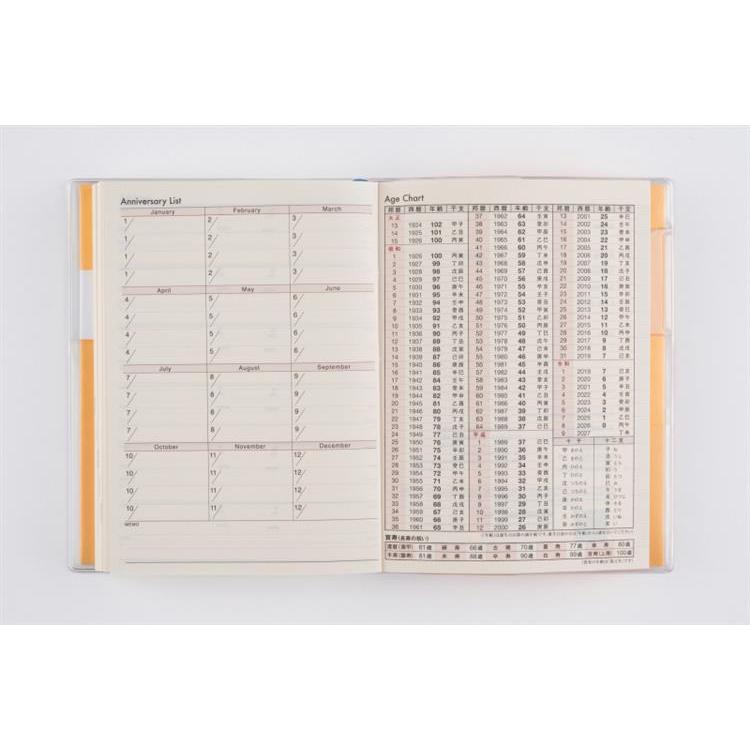 Anniversary List
January February March
1/ 2/ 3/
1/ 2/ 3/
1/ 2/ 3/
1/ 2/ 3/
April May June
4/ 5/ 6/
4/ 5/ 6/
4/ 5/ 6/
4/ 5/ 6/
July August September
7/ 8/ 9/
7/ 8/ 9/
7/ 8/ 9/
7/ 8/ 9/
October November December
10/ 11/ 12/
10/ 11/ 12/
10/ 11/ 12/
10/ 11/ 12/
MEMO
Age Chart
邦暦 西暦 年齢 干支
大正
13 1924 102 甲子
14 1925 101 乙丑
15 1926 100 丙寅
昭和
1 1926 100 丙寅
2 1927 99 丁卯
3 1928 98 戊辰
4 1929 97 己巳
5 1930 96 庚午
6 1931 95 辛未
7 1932 94 壬申
8 1933 93 癸酉
9 1934 92 甲戌
10 1935 91 乙亥
11 1936 90 丙子
12 1937 89 丁丑
13 1938 88 戊寅
14 1939 87 己卯
15 1940 86 庚辰
16 1941 85 辛巳
17 1942 84 壬午
18 1943 83 癸未
19 1944 82 甲申
20 1945 81 乙酉
21 1946 80 丙戌
22 1947 79 丁亥
23 1948 78 戊子
24 1949 77 己丑
25 1950 76 庚寅
26 1951 75 辛卯
27 1952 74 壬辰
28 1953 73 癸巳
29 1954 72 甲午
30 1955 71 乙未
31 1956 70 丙申
32 1957 69 丁酉
33 1958 68 戊戌
34 1959 67 己亥
35 1960 66 庚子
36 1961 65 辛丑
邦暦 西暦 年齢 干支
37 1962 64 壬寅
38 1963 63 癸卯
39 1964 62 甲辰
40 1965 61 乙巳
41 1966 60 丙午
42 1967 59 丁未
43 1968 58 戊申
44 1969 57 己酉
45 1970 56 庚戌
46 1971 55 辛亥
47 1972 54 壬子
48 1973 53 癸丑
49 1974 52 甲寅
50 1975 51 乙卯
51 1976 50 丙辰
52 1977 49 丁巳
53 1978 48 戊午
54 1979 47 己未
55 1980 46 庚申
56 1981 45 辛酉
57 1982 44 壬戌
58 1983 43 癸亥
59 1984 42 甲子
60 1985 41 乙丑
61 1986 40 丙寅
62 1987 39 丁卯
63 1988 38 戊辰
64 1989 37 己巳
平成
1 1989 37 己巳
2 1990 36 庚午
3 1991 35 辛未
4 1992 34 壬申
5 1993 33 癸酉
6 1994 32 甲戌
7 1995 31 乙亥
8 1996 30 丙子
9 1997 29 丁丑
10 1998 28 戊寅
11 1999 27 己卯
12 2000 26 庚辰
邦暦 西暦 年齢 干支
13 2001 25 辛巳
14 2002 24 壬午
15 2003 23 癸未
16 2004 22 甲申
17 2005 21 乙酉
18 2006 20 丙戌
19 2007 19 丁亥
20 2008 18 戊子
21 2009 17 己丑
22 2010 16 庚寅
23 2011 15 辛卯
24 2012 14 壬辰
25 2013 13 癸巳
26 2014 12 甲午
27 2015 11 乙未
28 2016 10 丙申
29 2017 9 丁酉
30 2018 8 戊戌
31 2019 7 己亥
令和
1 2019 7 己亥
2 2020 6 庚子
3 2021 5 辛丑
4 2022 4 壬寅
5 2023 3 癸卯
6 2024 2 甲辰
7 2025 1 乙巳
8 2026 0 丙午
9 2027 丁未
十干 十二支
賀寿(長寿の祝い)
還暦(華甲) 61歳 緑寿 66歳 古稀 70歳 喜寿 77歳 傘寿 80歳
半寿(盤寿) 81歳 米寿 88歳 卒寿 90歳 白寿 99歳 百寿(上寿) 100歳